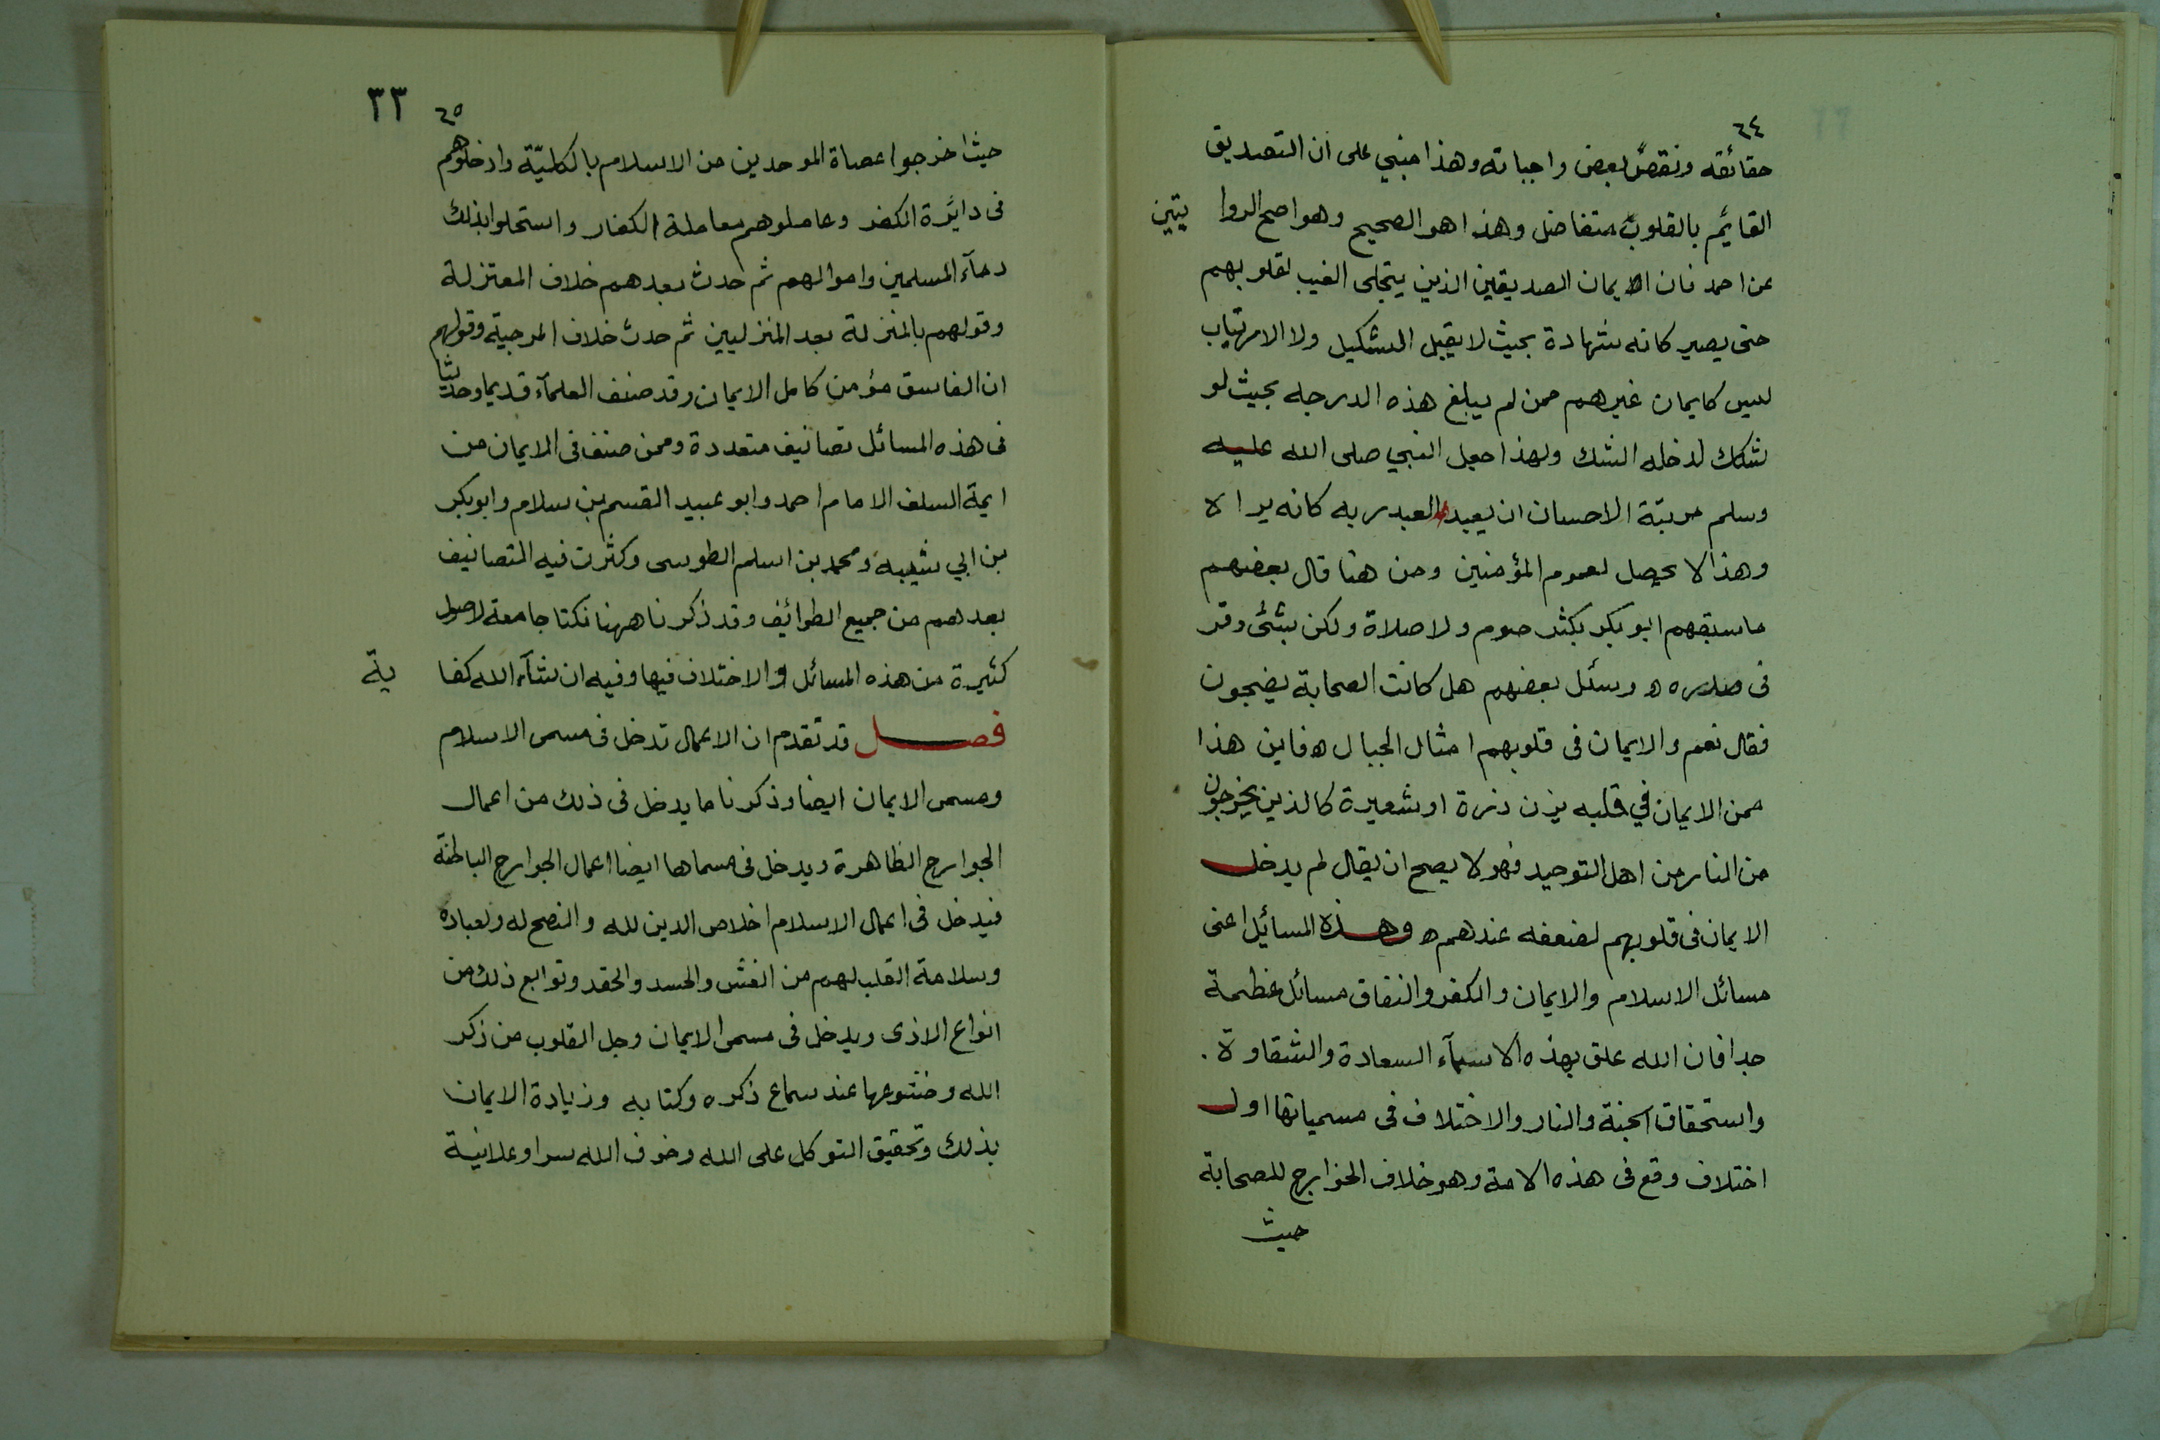 ٦٤
حقائقه ونقص بعض واجباته وهذا مبني على ان التصديق
القائم بالقلوب متفاضل وهذا هو الصحيح وهو اصح الروايتين
عن احمد فان الايمان الصديقين الذين يتجلى الغيب لقلوبهم
حتى يصير كانه شهادة بحيث لا يقبل التشكيك ولا الارتياب
ليس كايمان غيرهم ممن لم يبلغ هذه الدرجه بحيث لو
شكك لدخله الشك ولهذا جعل النبي صلى الله عليه
وسلم مرتبة الاحسان ان يعبد العبد ربه كانه يراه
وهذا لا يحصل لعموم المؤمنين ومن هنا قال بعضهم
ماسبقهم ابو بكر بكثر صوم ولا صلاة ولكن بشئ وقر
فى صدره ه وسئل بعضهم هل كانت الصحابة يضحكون
فقال نعم والايمان فى قلوبهم امثال الجبال ه فاين هذا
ممن الايمان في قلبه يزن ذرة او شعيرة كالذين يخرجون
من النار من اهل التوحيد فهولا يصح ان يقال لم يدخل
الايمان فى قلوبهم لضعفه عندهم ه وهذه المسائل اعنى
مسائل الاسلام والايمان والكفر والنفاق مسائل عظيمة
جدا فان الله علق بهذه الاسمآء السعادة والشقاوة .
واستحقاق الجنة والنار والاختلاف فى مسمياتها اول
اختلاف وقع فى هذه الامة وهو خلاف الخوارج للصحابة
حيث
٦٥ ٣٣
حيث اخرجوا عصاة الموحدين من الاسلام بالكليّة وادخلوهم
فى دائرة الكفر وعاملوهم معاملة الكفار واستحلوا بذلك
دمآء المسلمين واموالهم ثم حدث بعدهم خلاف المعتزلة
وقولهم بالمنزلة بعد المنزليين ثم حدث خلاف المرجية وقولهم
ان الفاسق مؤمن كامل الايمان وقد صنف العلمآء قديما وحديثا
فى هذه المسائل تصانيف متعددة وممن صنف فى الايمان من
ايمة السلف الامام احمد وابو عبيد القسم بن سلام وابو بكر
بن ابي شيبة ومحمد بن اسلم الطوسى وكثرت فيه التصانيف
بعدهم من جميع الطوائف وقد ذكرنا ههنا نكتا جامعة لاصول
كثيرة من هذه المسائل والاختلاف فيها وفيه ان شآء الله كفاية
فصل قد تقدم ان الاعمال تدخل فى مسمى الاسلام
ومسمى الايمان ايضا وذكرنا ما يدخل فى ذلك من اعمال
الجوارح الظاهرة ويدخل فى مسماها ايضا اعمال الجوارح الباطنة
فيدخل فى اعمال الاسلام اخلاص الدين لله والنصح له ولعباده
وسلامة القلب لهم من الغش والحسد والحقد وتوابع ذلك من
انواع الاذى ويدخل فى مسمى الايمان وجل القلوب من ذكر
الله وخشوعها عند سماع ذكره وكتابه وزيادة الايمان
بذلك وتحقيق التوكل على الله وخوف الله سرا وعلانية